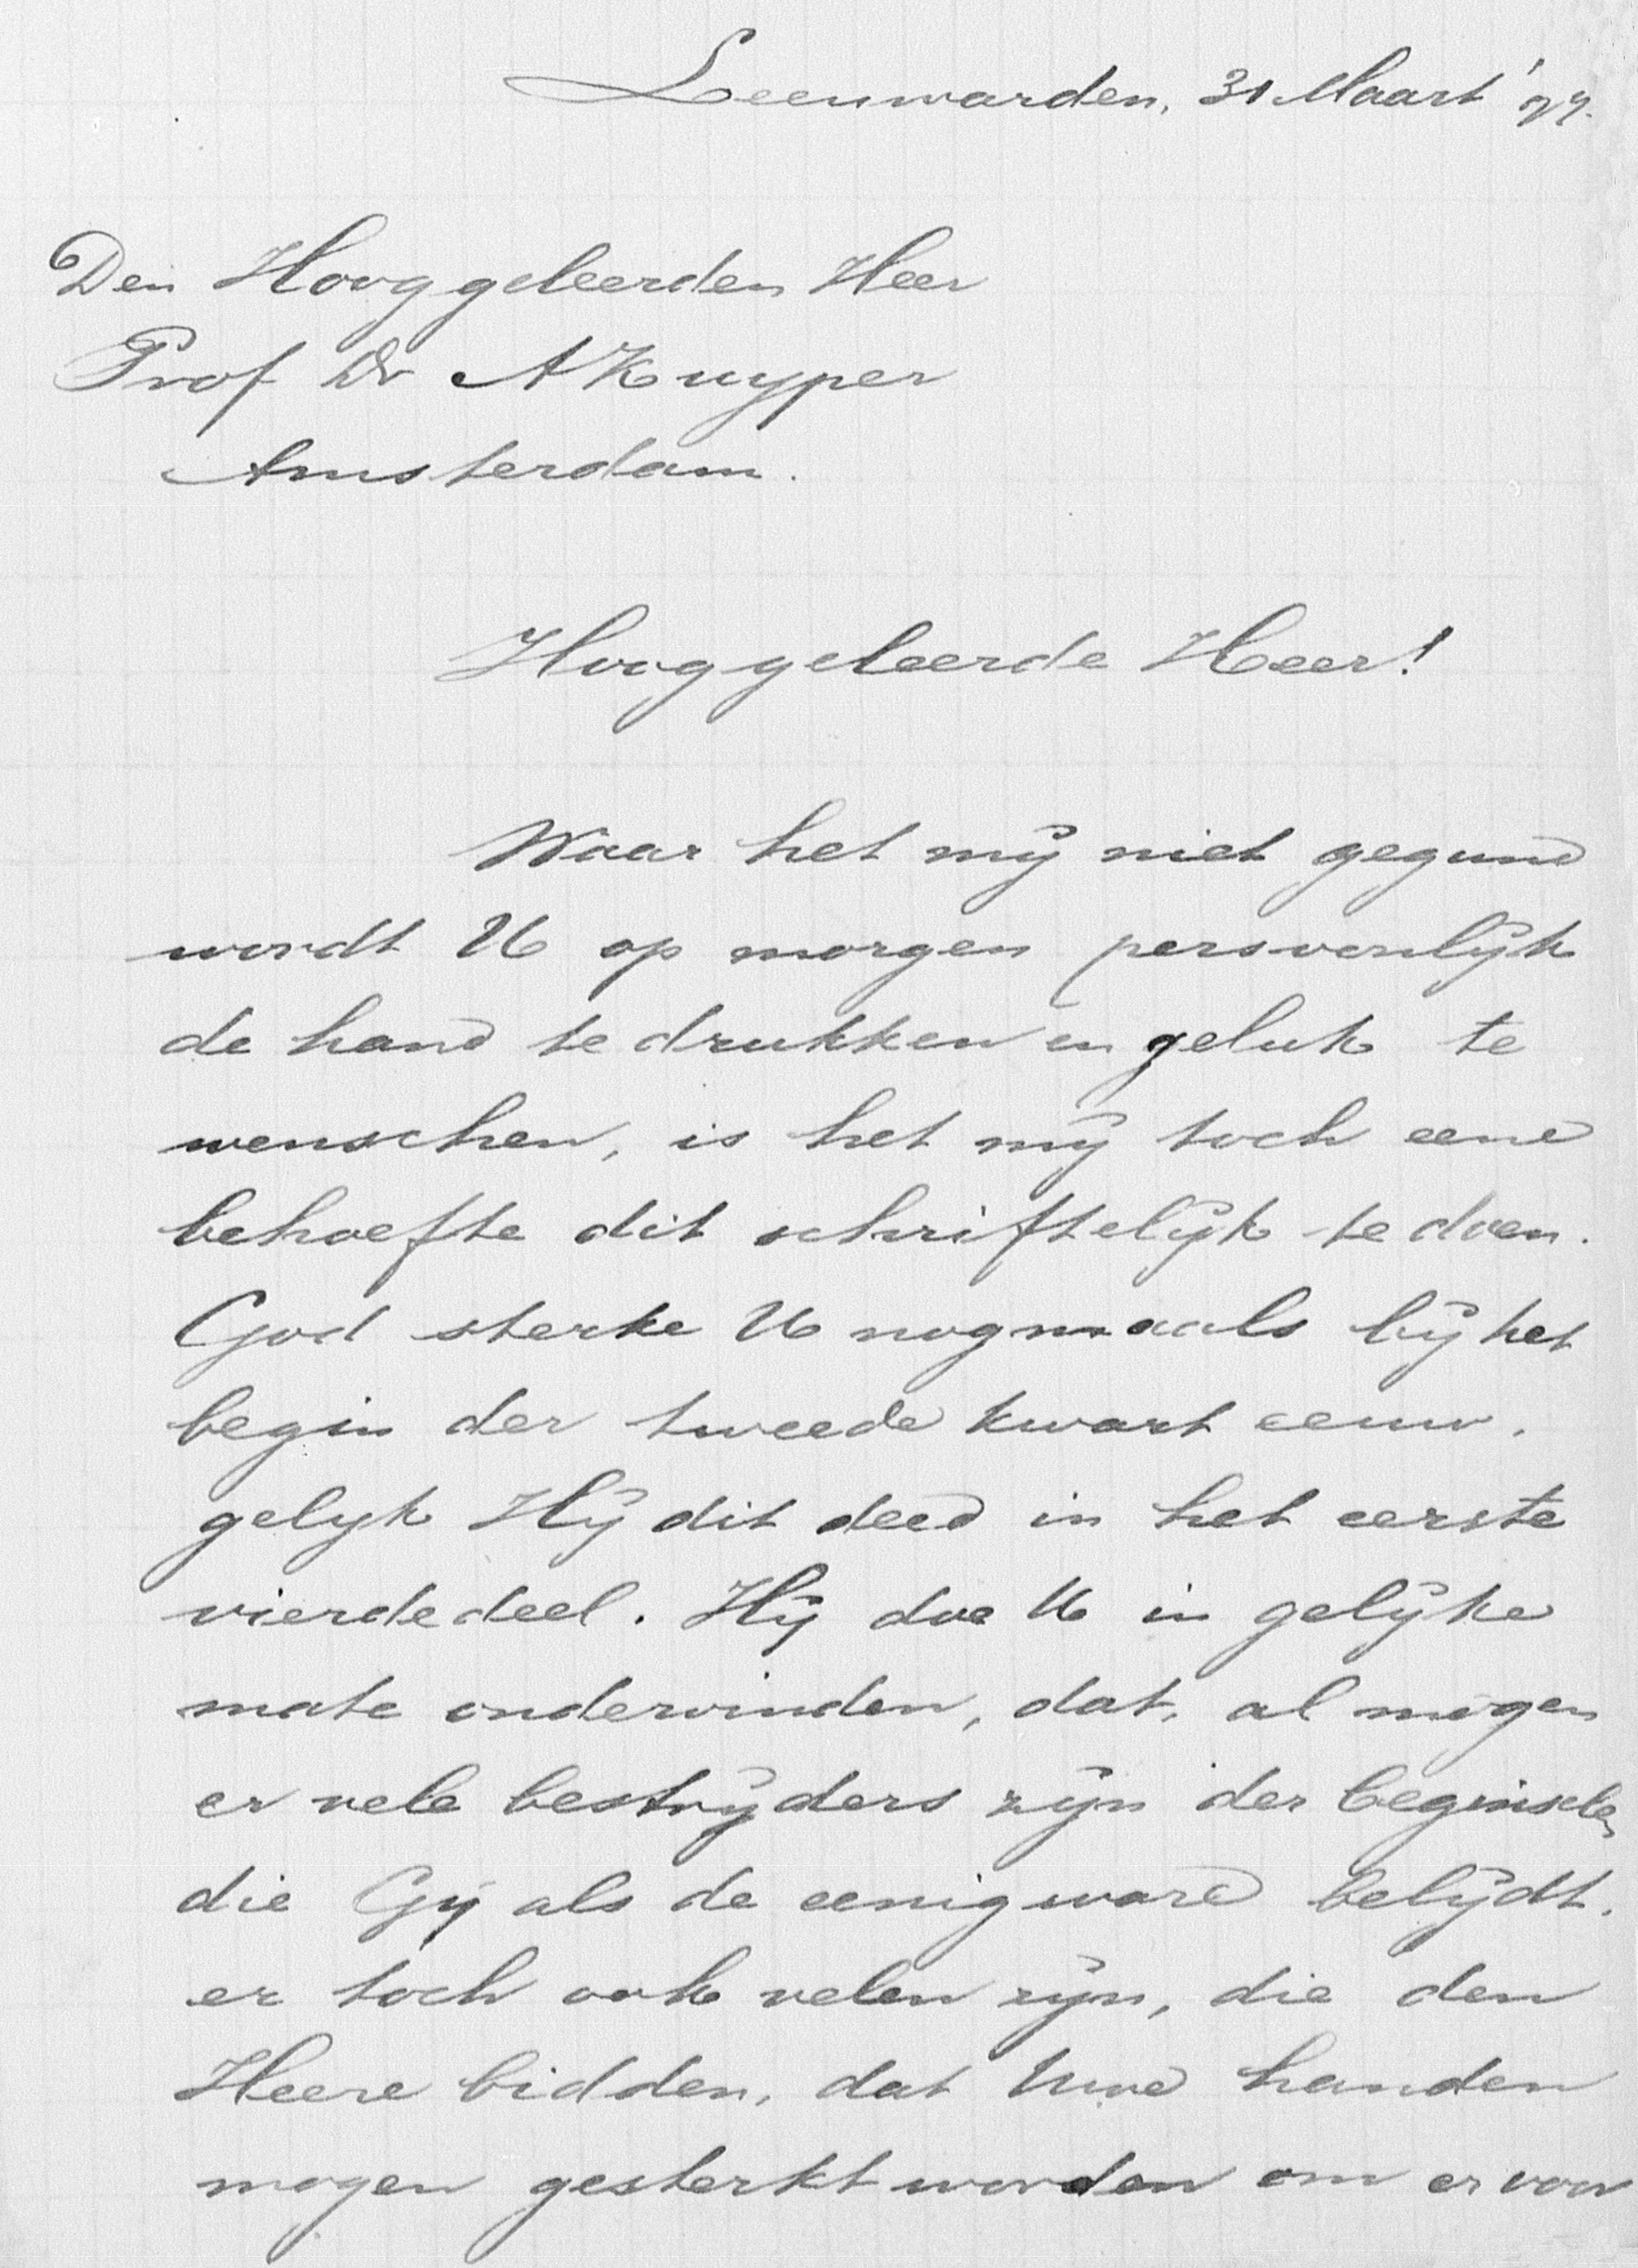 Leeuwarden, 31 Maart '97.
Den Hooggeleerden Heer
Prof Dr A Kuyper
Amsterdam.
Hooggeleerde Heer!
Waar het mij niet gegund
wordt U op morgen persoonlijk
de hand te drukken en geluk te
wenschen, is het mij toch eene
behoefte dit schriftelijk te doen.
God sterke U nogmaals bij het
begin der tweede kwart eeuw,
gelijk Hij dit deed in het eerste
vierdedeel. Hij doe U in gelijke
mate ondervinden, dat, al mogen
er vele bestrijders zijn der beginselen
die Gij als de eenig ware belijdt,
er toch ook velen zijn, die den
Heere bidden, dat Uwe handen
mogen gesterkt worden om er voor